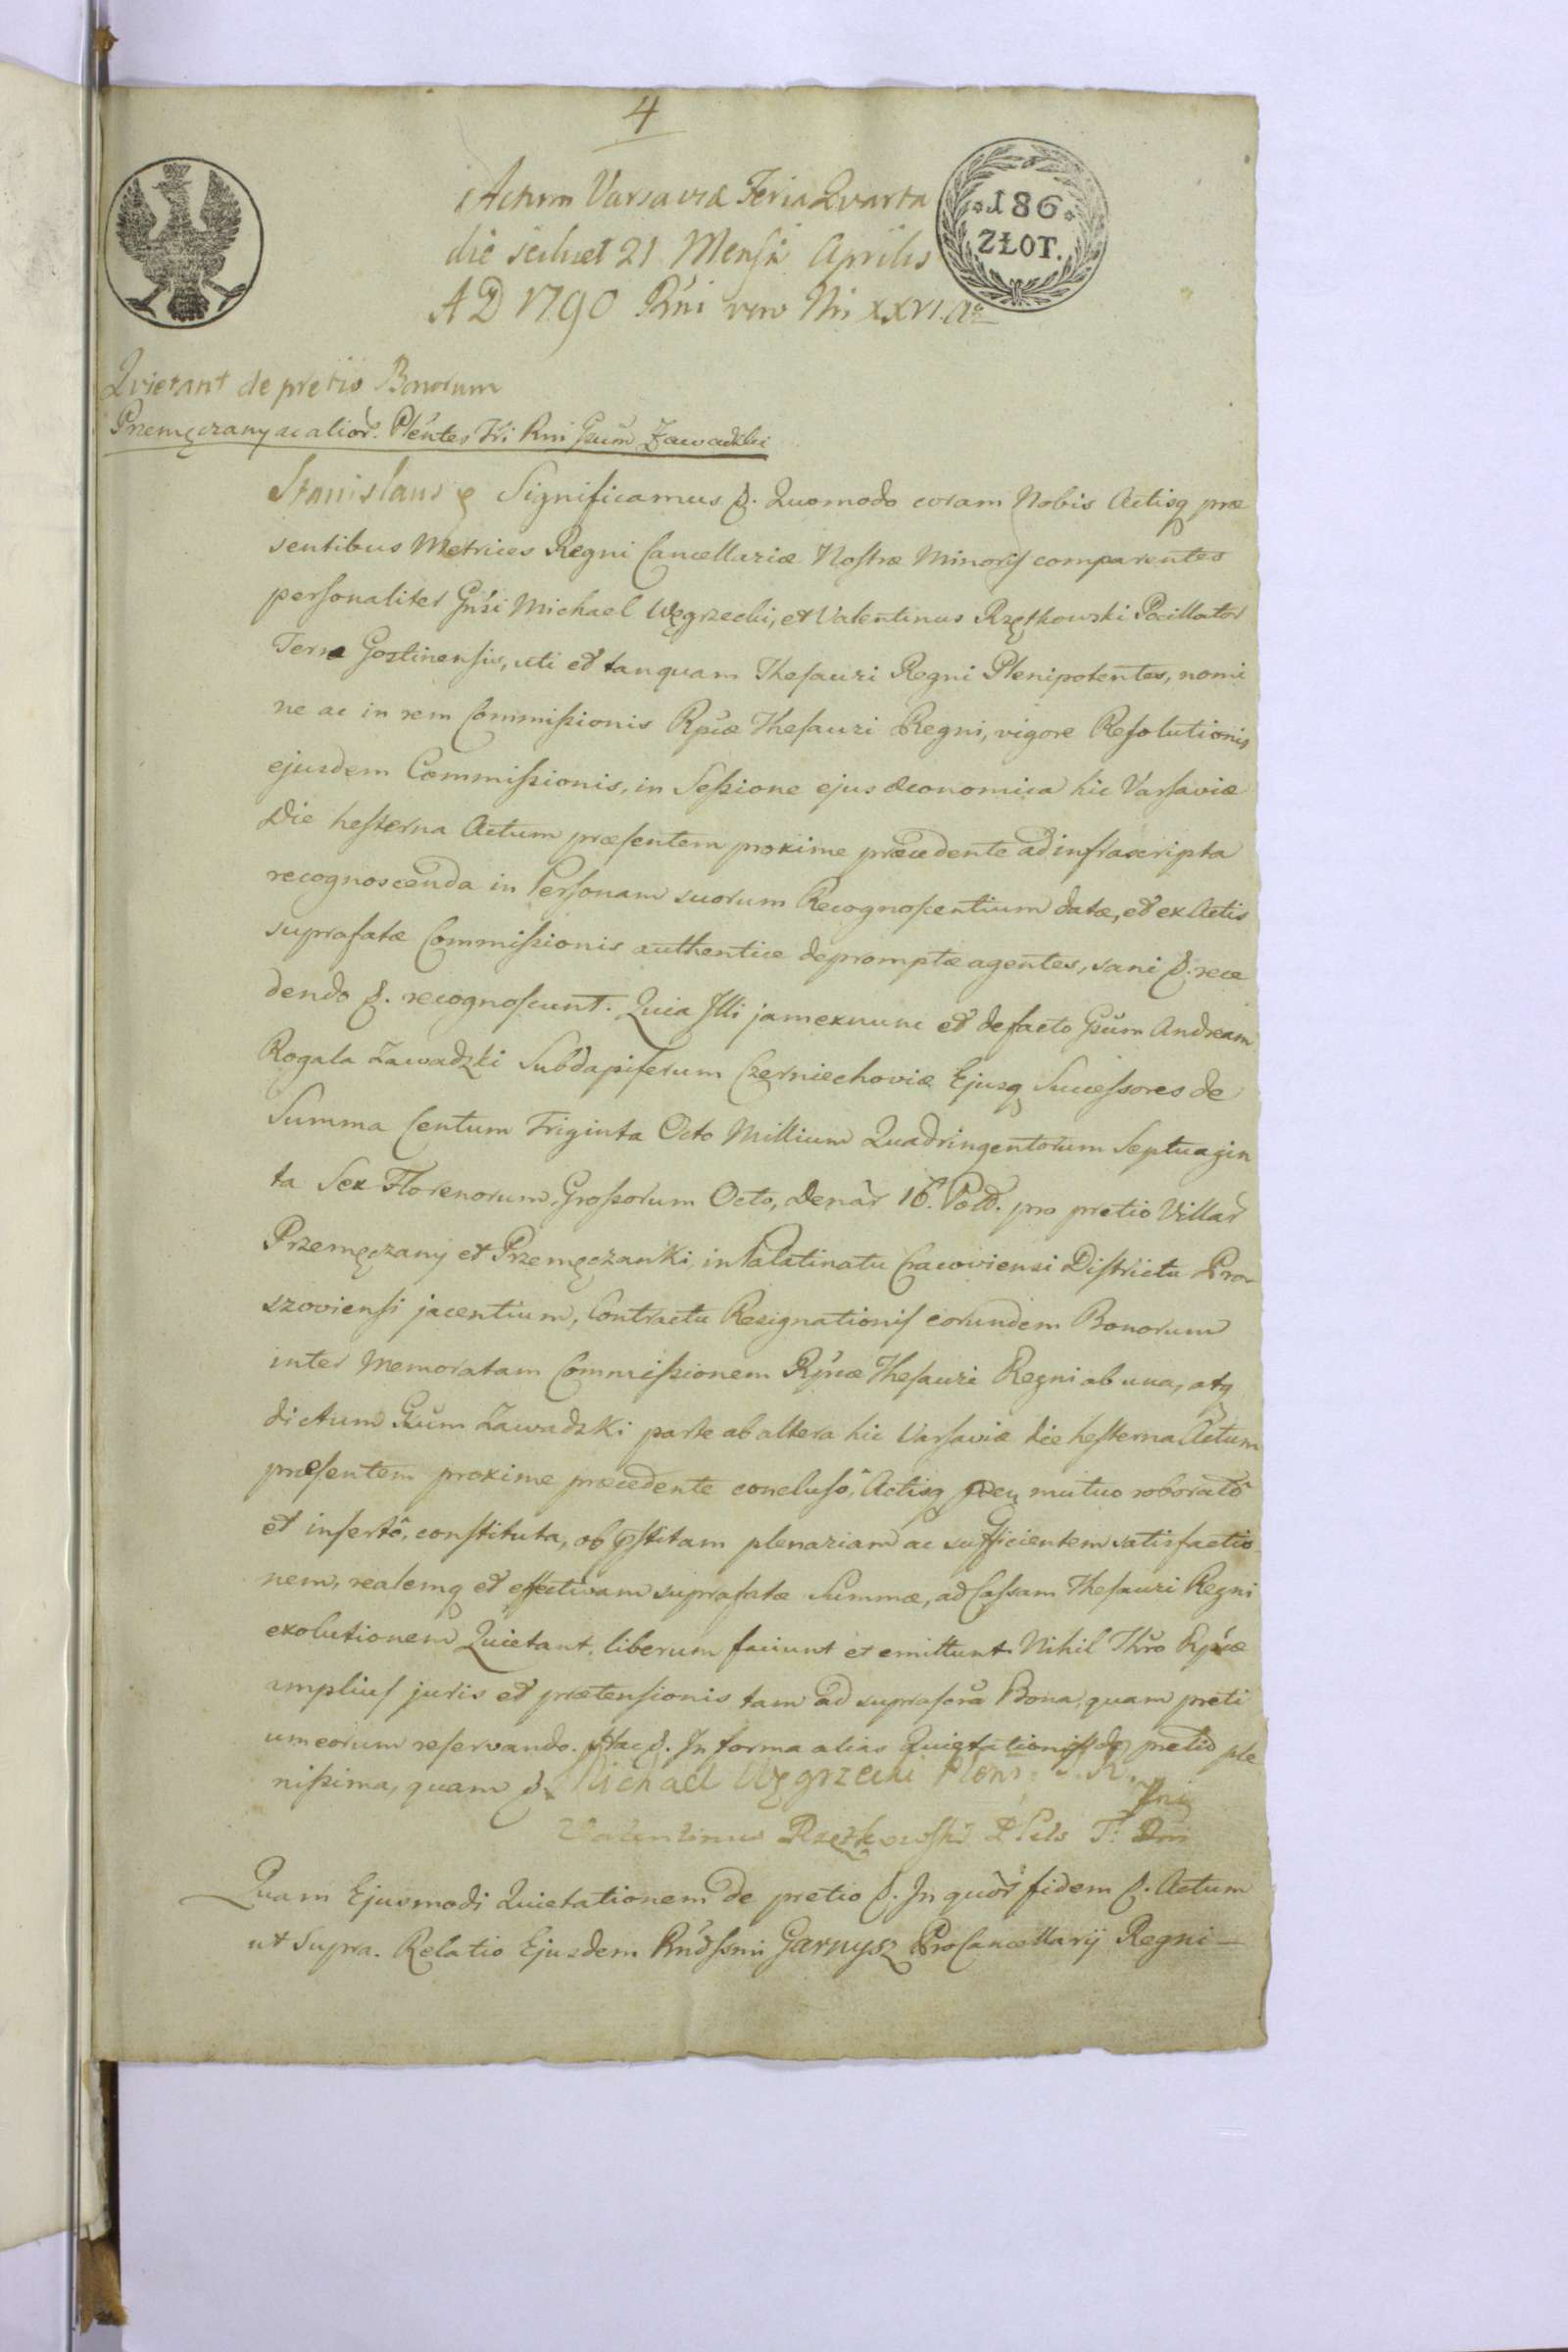 4
Actum Varsaviæ Feria Quarta
die scilicet 21 Mensis Aprilis
A D 1790 Rńi vero Nri XXVI. Ao
186
ZŁOT.
Quietant de pretiis Bonorum
Przemęczany ac alior. Pleńtes Tri Rni Gsum Zawadzki
Stanislaus &. Significamus &. Quomodo coram Nobis Actisq præ
sentibus Metrices Regni Cancellariæ Nostræ Minoris comparentes
personaliter Gńsi Michael Węgrzecki, et Valentinus Rzętkowski Pocillator
Terræ Gostinensis, uti et tanquam Thesauri Regni Plenipotentes, nomi
ne ac in rem Commissionis Rpcæ Thesauri Regni, vigore Resolutionis
ejusdem Commissionis, in Sessione ejus œconomica hic Varsaviæ
Die hesterna Actum præsentem proxime præcedente ad infrascripta
recognoscenda in Personam suorum Recognoscentium datæ, et ex Actis
suprafatæ Commissionis authentice depromptæ agentes, sani &. rece
dendo &. recognoscunt. Quia Illi jam ex nunc et de facto Gsum Andream
Rogala Zawadzki Subdapiferum Czerniechoviæ Ejusq Successores de
Summa Centum Triginta Octo Millium Quadringentorum Septuagin
ta Sex Florenorum, Grossorum Octo, Denar 16. Pold. pro pretio Villar
Przemęczany et Przemęczanki, in Palatinatu Cracoviensi Districtu Pro
szoviensi jacentium, Contractu Resignationis eorundem Bonorum
inter Memoratam Commissionem Rpcæ Thesauri Regni ab una, atq
dictum Gsum Zawadzki parte ab altera hic Varsaviæ die hesterna Actum
præsentem proxime præcedente conclusô, Actisq mutuo roboratô
et insertô, constituta, ob pstitam plenariam ac sufficientem satisfactio
nem, realemq et effectivam suprafatæ Summæ, ad Cassam Thesauri Regni
exolutionem Quietant, liberum faciunt et emittunt. Nihil Thro Rpcæ
amplius juris et prætensionis tam ad suprascra Bona, quam preti
um eorum reservando. Hac &. In forma alias Quietationis de pretio ple
nissima, quam &. Michael Węgrzecki Plens T. R.
Valentinus Rzętkowski T. Rni
Quam Ejusmodi Quietationem de pretio &. In quor fidem &. Actum
ut Supra. Relatio Ejusdem Rndssmi Garnysz ProCancellarij Regni